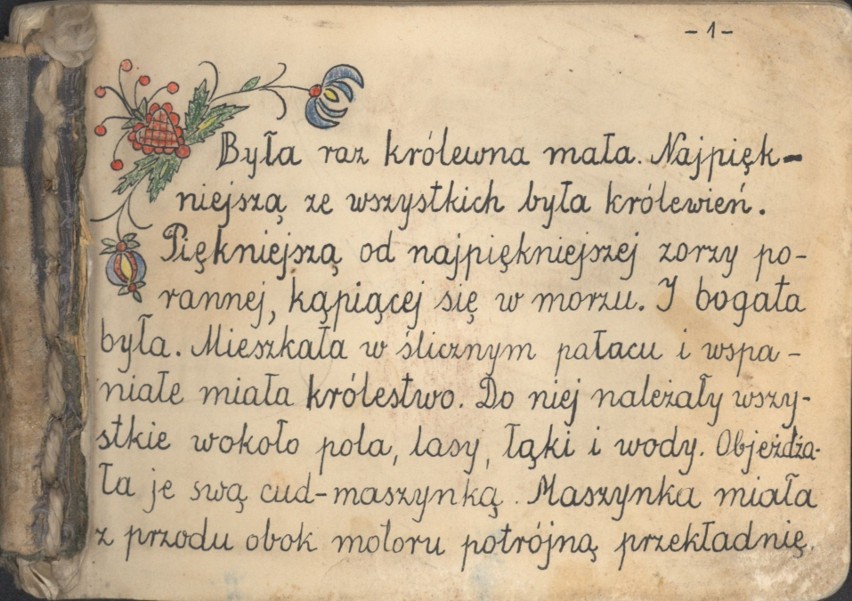 - 1 -
Była raz królewna mała. Najpięk-
niejszą ze wszystkich była królewień.
Piękniejszą od najpiękniejszej zorzy po-
rannej, kąpiącej się w morzu. I bogata
była. Mieszkała w ślicznym pałacu i wspa-
niałe miała królestwo. Do niej należały wszy-
stkie wokoło pola, lasy, łąki i wody. Objeżdża-
ła je swą cud-maszynką. Maszynka miała
z przodu obok motoru potrójną przekładnię.